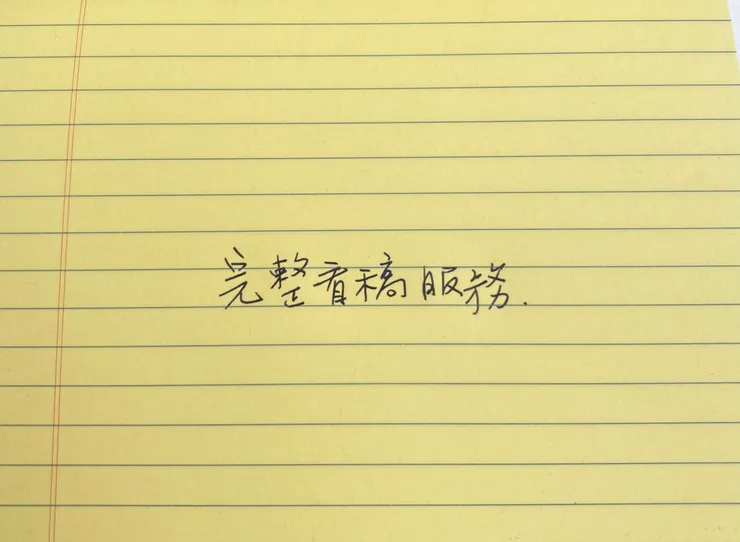 完整看稿服務.